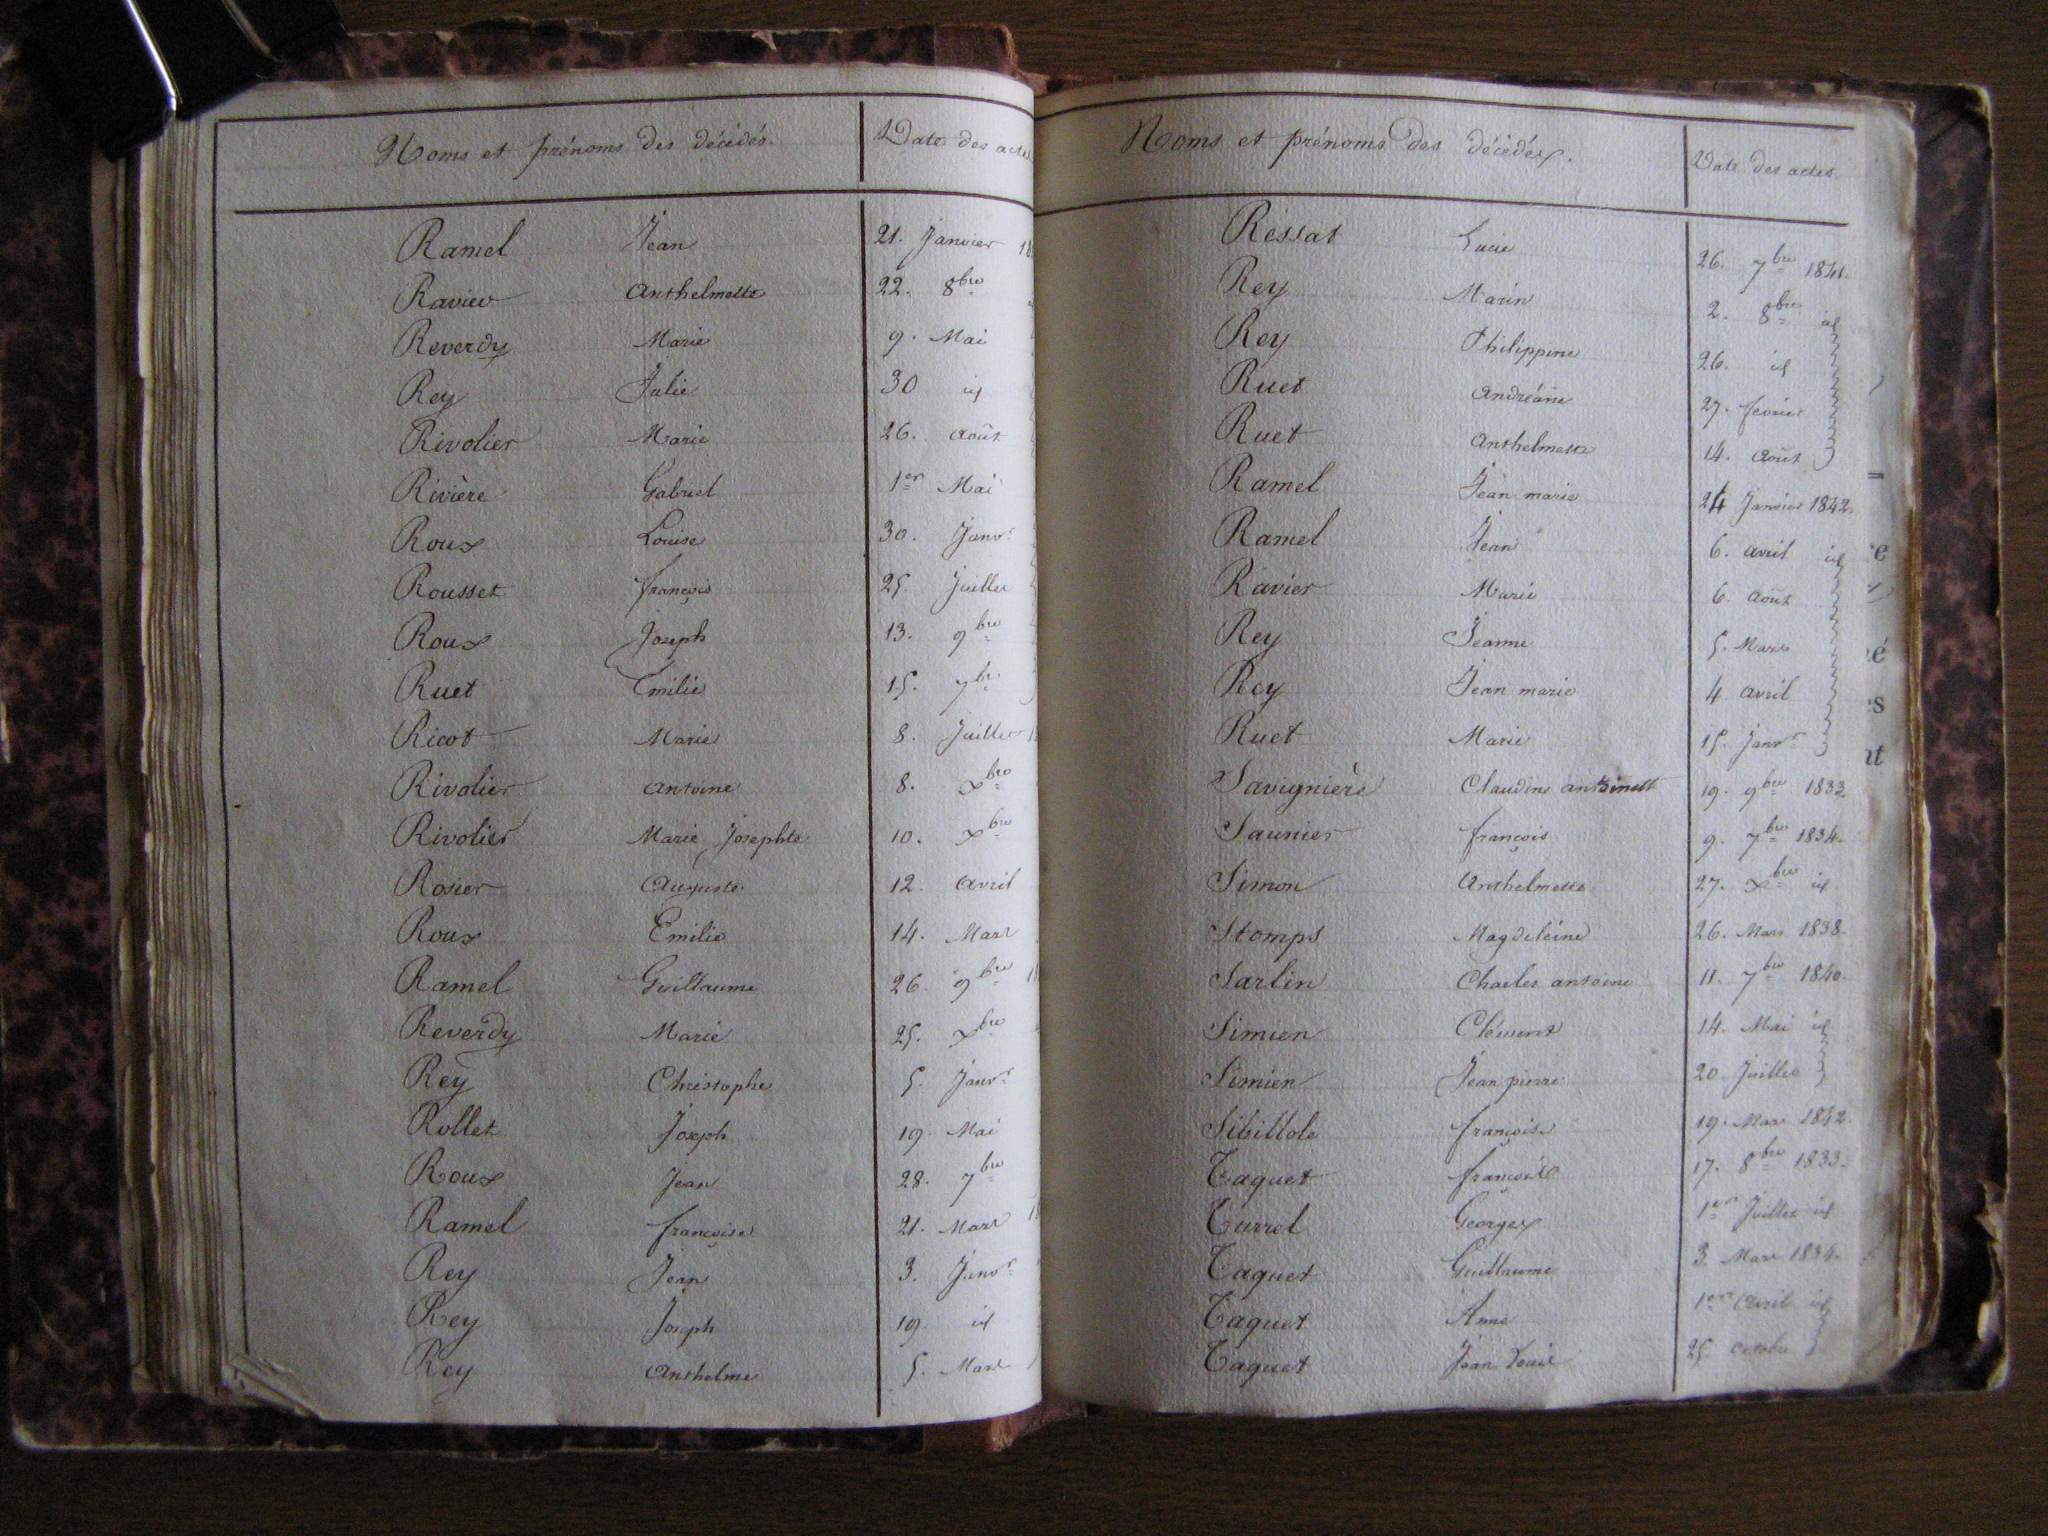 Noms et prénoms des décédés. Date des actes
Ramel Jean 21. Janvier
Ravier Anthelmette 22. 8bre
Reverdy Marie 9. Mai
Rey Julie 30 id
Rivolier Marie 26. Août
Rivière Gabriel 1er Mai
Roux Louise 30. Janvr
Rousset françois 25. Juillet
Roux Joseph 13. 9bre
Ruet Emilie 15. 7bre
Ricot Marie 8. Juillet
Rivolier Antoine 8. Xbre
Rivolier Marie Josephte 10. Xbre
Rosier Auguste 12. Avril
Roux Emilie 14. Mars
Ramel Guillaume 26. 9bre
Reverdy Marie 25. Xbre
Rey Christophe 5. Janvr
Rollet Joseph 19 Mai
Roux Jean 28. 7bre
Ramel françoise 21. Mars
Rey Jean 3. Janvr
Rey Joseph 19. id
Rey Anthelme 5. Mars
Noms et prénoms des décédés. Date des actes.
Ressat Lucie 26. 7bre 1841.
Rey Marin 2. 8bre id
Rey Philippine 26. id
Ruet Andréane 27. février
Ruet Anthelmette 14. Août
Ramel Jean marie 24 Janvier 1842.
Ramel Jean 6. Avril id
Ravier Marie 6. Août
Rey Jeanne 5. Mars
Rey Jean marie 4 Avril
Ruet Marie 15. Janvr
Savignière Claudine 19. 9bre 1833
Saunier françois 9. 7bre 1834.
Simon Anthelmette 27. Xbre id
Stomps Magdeleine 26. Mars 1838.
Sarlin Charles antoine 11. 7bre 1840.
Simien Clément 14. Mai id
Simien Jean pierre 20. Juillet
Sibillole françoise 19. Mars 1842.
Taquet 17. 8bre 1833.
Turrel Georges 1er Juillet id
Taquet Guillaume 3. Mars 1834.
Taquet Anne 1er Avril id
Taquet Jean Louis 25 octobre